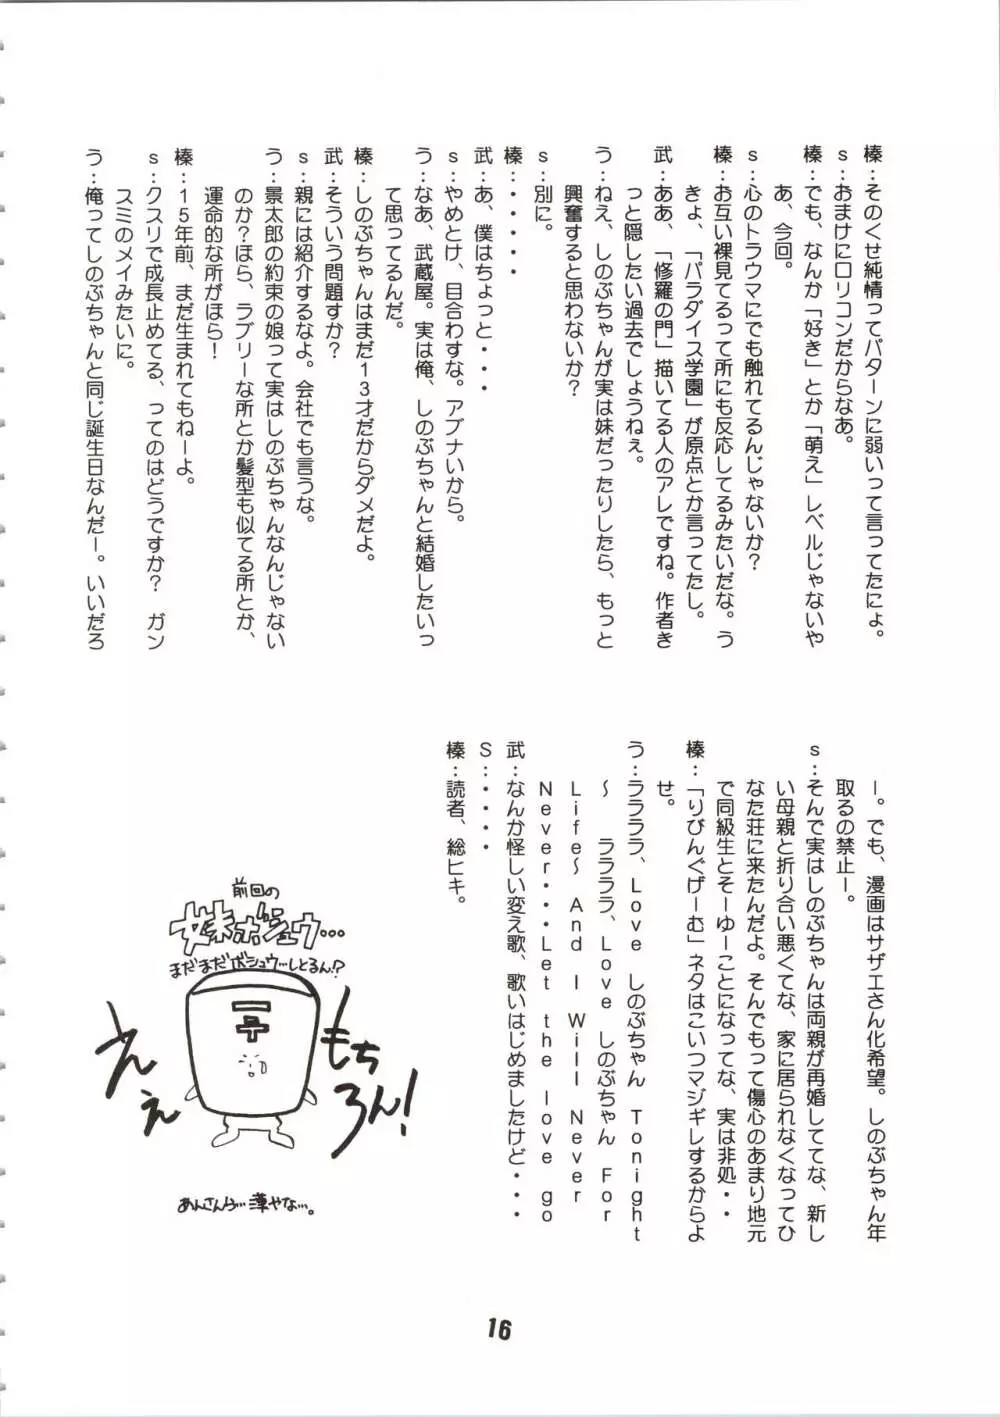 榛：そのくせ純情ってパターンに弱いって言ってたにょ。
s：おまけにロリコンだからなあ。
榛：でも、なんか「好き」とか「萌え」レベルじゃないや
あ、今回。
s：心のトラウマにでも触れてるんじゃないか？
榛：お互い裸見てるって所にも反応してるみたいだな。う
きょ、「パラダイス学園」が原点とか言ってたし。
武：ああ、「修羅の門」描いてる人のアレですね。作者き
っと隠したい過去でしょうねぇ。
う：ねえ、しのぶちゃんが実は妹だったりしたら、もっと
興奮すると思わないか？
s：別に。
榛：・・・・・
武：あ、僕はちょっと・・・
s：やめとけ、目合わすな。アブナいから。
う：なあ、武蔵屋。実は俺、しのぶちゃんと結婚したいっ
て思ってるんだ。
榛：しのぶちゃんはまだ13才だからダメだよ。
武：そういう問題すか？
s：親には紹介するなよ。会社でも言うな。
う：景太郎の約束の娘って実はしのぶちゃんなんじゃない
のか？ほら、ラブリーな所とか髪型も似てる所とか、
運命的な所がほら！
榛：15年前、まだ生まれてもねーよ。
s：クスリで成長止めてる、ってのはどうですか？　ガン
スミのメイみたいに。
う：俺ってしのぶちゃんと同じ誕生日なんだー。いいだろ
ー。でも、漫画はサザエさん化希望。しのぶちゃん年
取るの禁止ー。
s：そんで実はしのぶちゃんは両親が再婚しててな、新し
い母親と折り合い悪くてな、家に居られなくなってひ
なた荘に来たんだよ。そんでもって傷心のあまり地元
で同級生とそーゆーことになってな、実は非処・・
榛：「りびんぐげーむ」ネタはこいつマジギレするからよ
せ。
う：ラララララ、Love しのぶちゃん Tonight
〜　ララララ、Love しのぶちゃん For
Life〜 And I Will Never
Never・・・Let the love go
武：なんか怪しい変え歌、歌いはじめましたけど・・・
S：・・・・
榛：読者、総ヒキ。
前回の
妹ボシュウ…
まだまだボシュウ…しとるん!?
もち
ろん!
ええ
あんさんら…薄やな…。
16